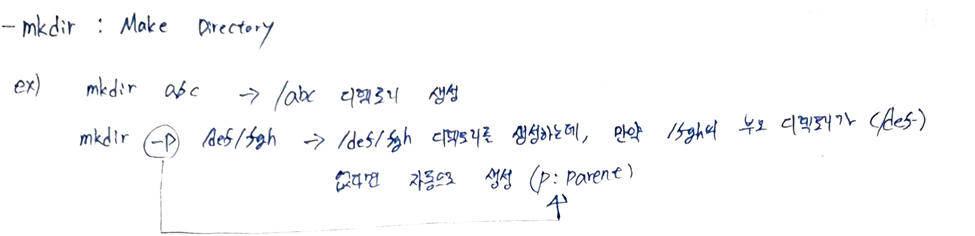 - mkdir : Make Directory
ex) mkdir abc → /abc 디렉토리 생성
mkdir -p /def/fgh → /def/fgh 디렉토리를 생성하는데, 만약 /fgh의 부모 디렉토리가 (/def)
없다면 자동으로 생성 (p: parent)